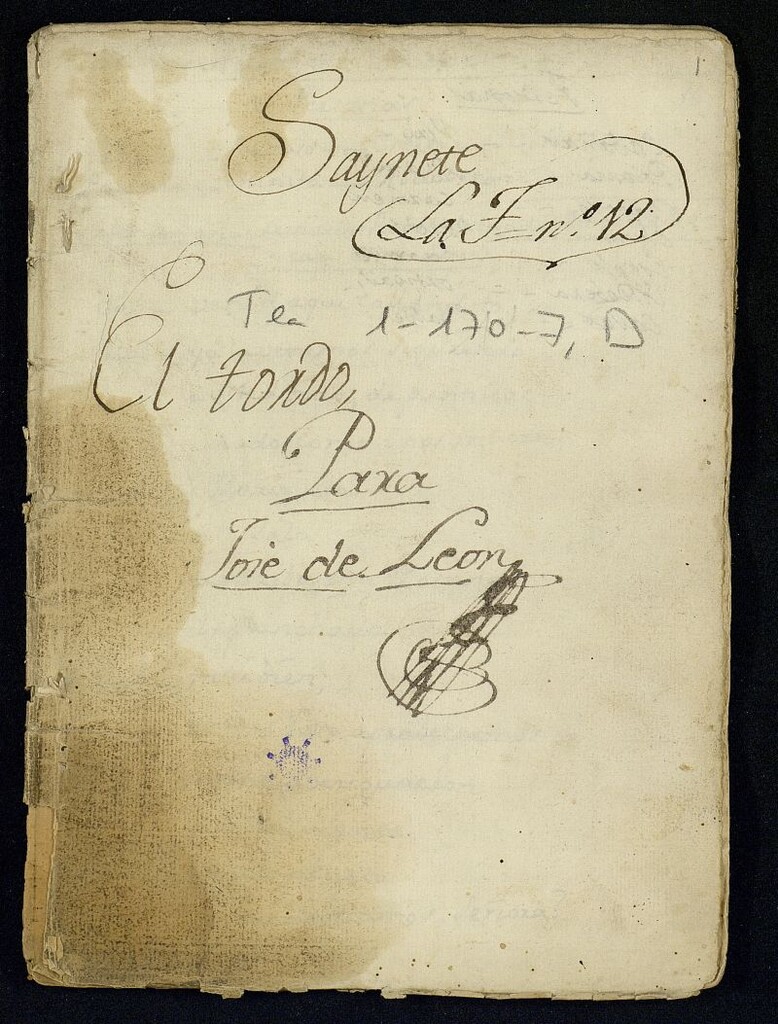 1
Saynete
La J= nº. 12.
Tea 1-170-7, D
El tordo,
Para
Jose de Leon